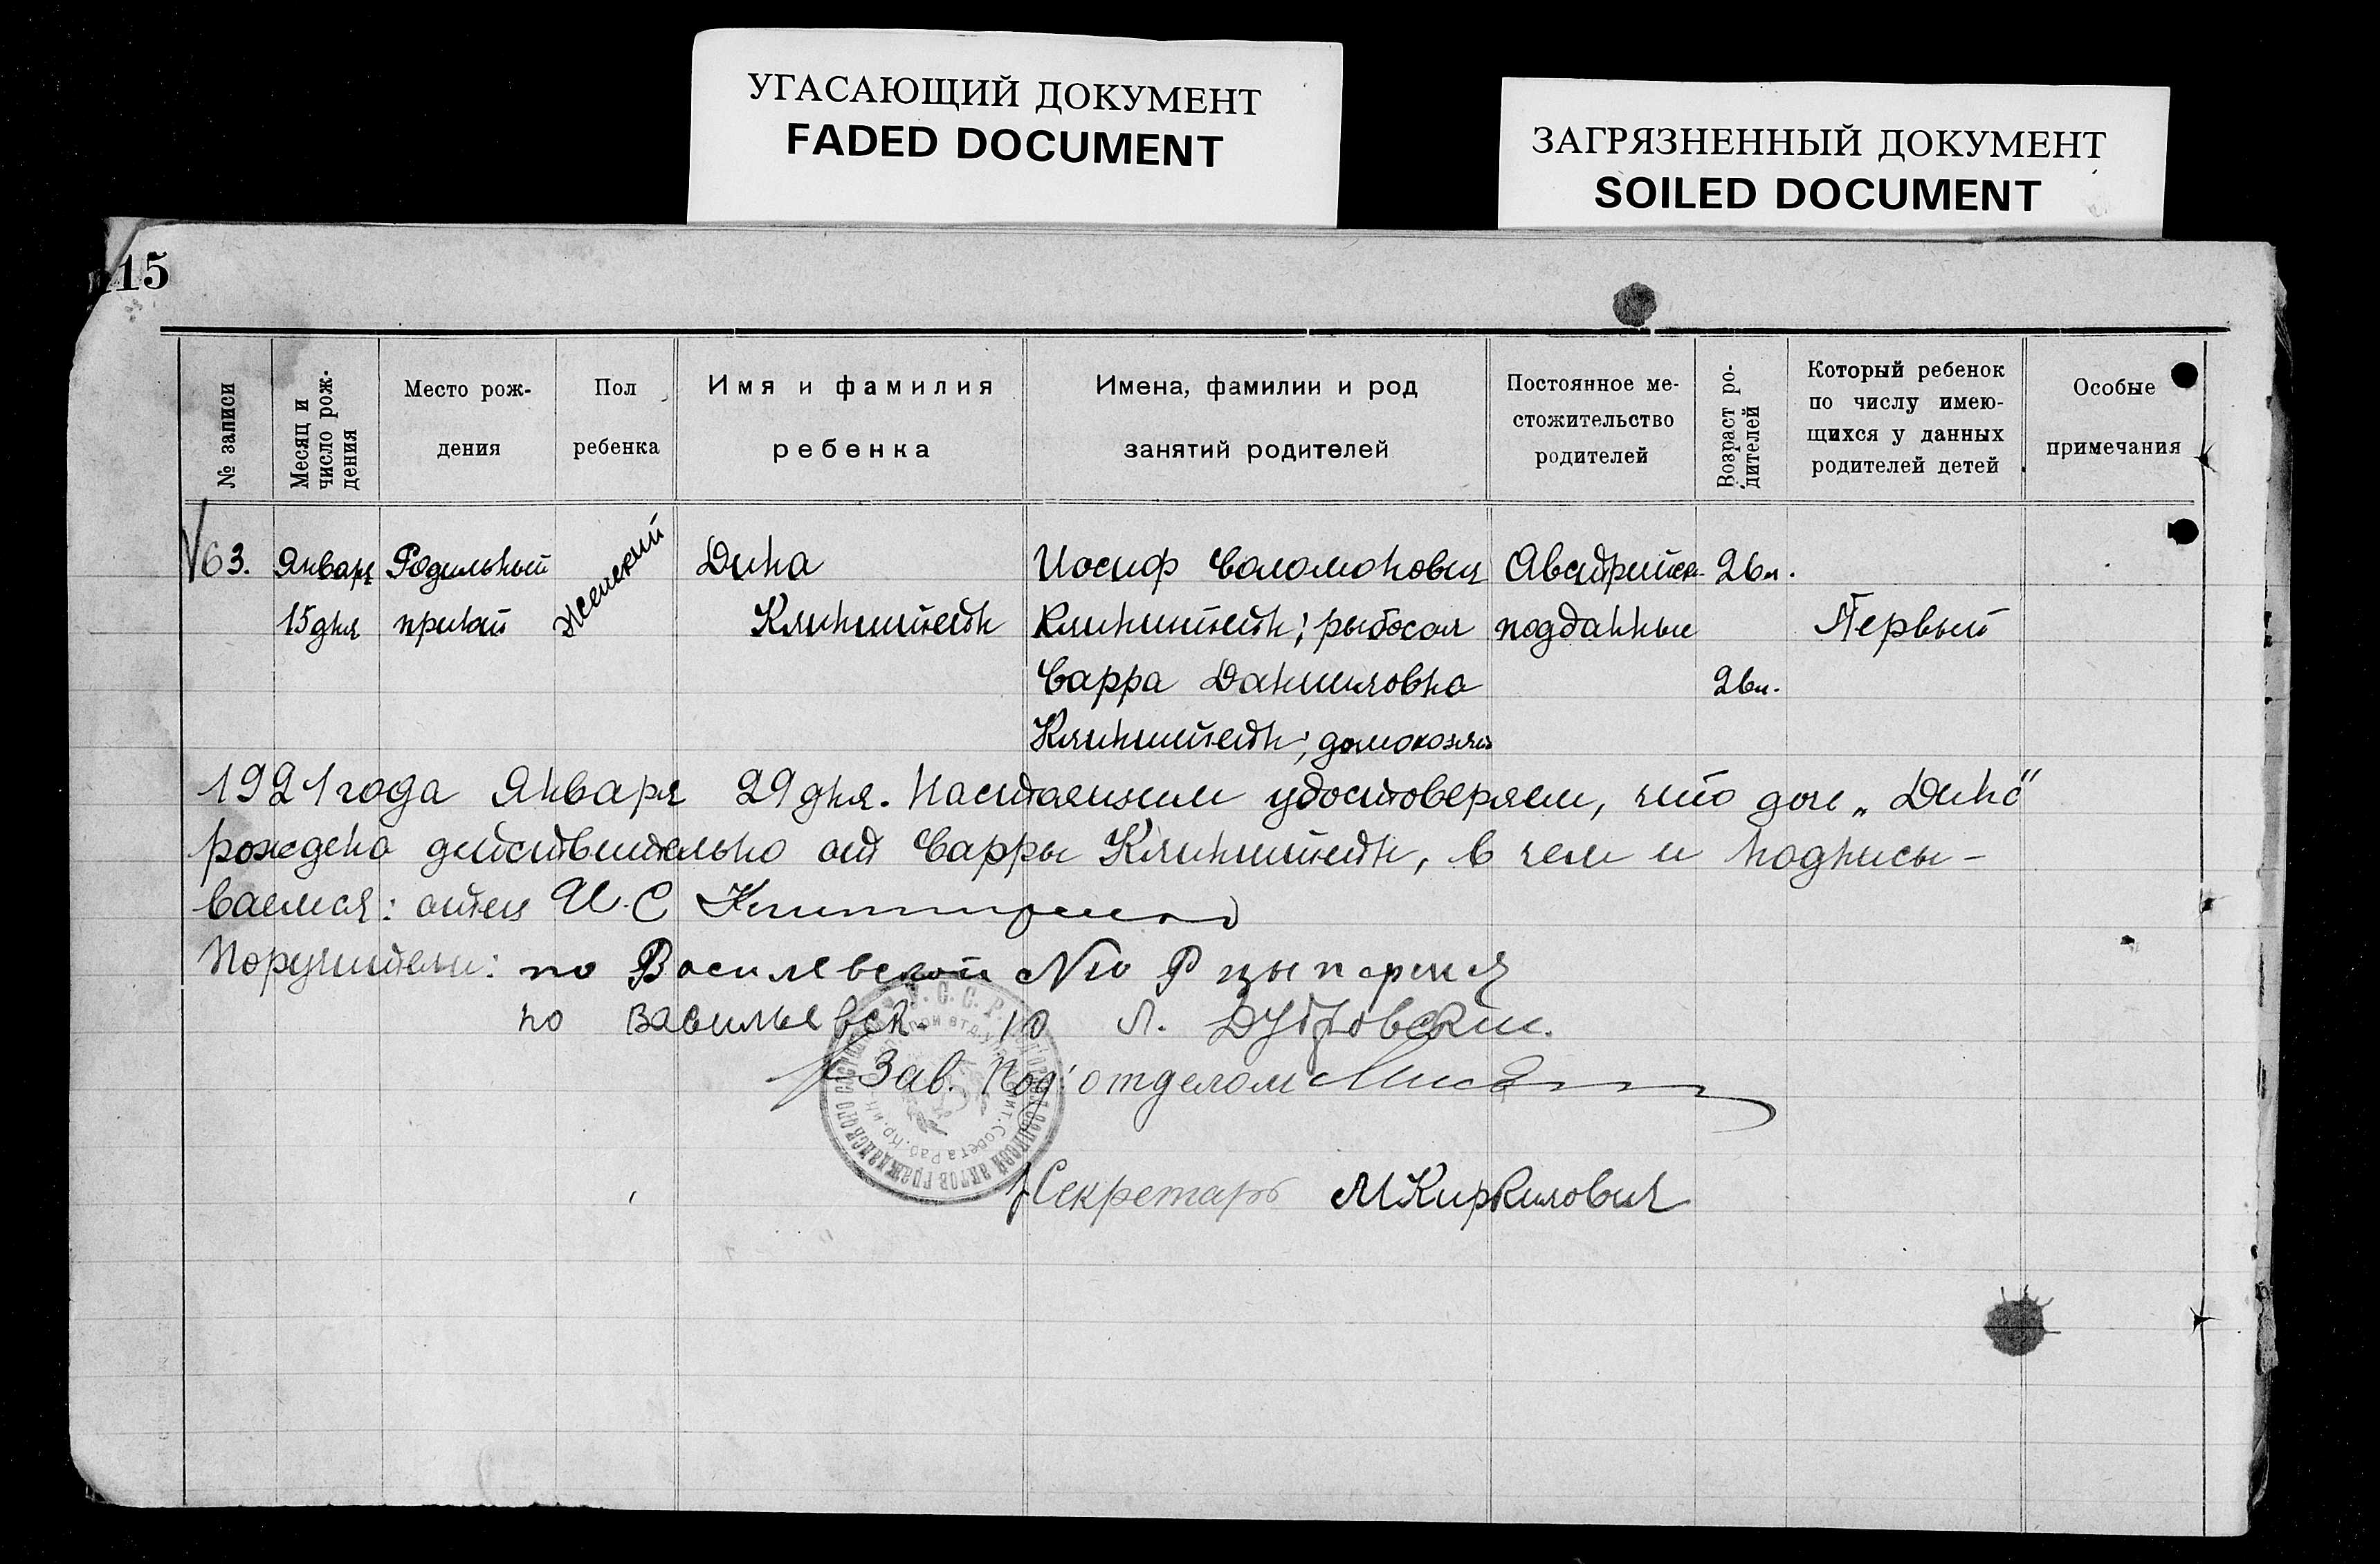 УГАСАЮЩИЙ ДОКУМЕНТ
FADED DOCUMENT
ЗАГРЯЗНЕННЫЙ ДОКУМЕНТ
SOILED DOCUMENT
15
№ записи
Месяц и
число рож-
дения
Место рож-
дения
Пол
ребенка
Имя и фамилия
ребенка
Имена, фамилии и род
занятий родителей
Постоянное ме-
стожительство
родителей
Возраст ро-
дителей
Который ребенок
по числу имею-
щихся у данных
родителей детей
Особые
примечания
63.
Января
15 дня
Родильный
приют
Женский
Дина
Клинштейн
Иосиф Соломонович
Клинштейн; рыбосол
Сарра Данииловна
Клинштейн; домохозяй
Австрийск.
подданные
26 л.
26 л.
Первый
1921 года Января 29 дня. Настоящим удостоверяем, что дочь „Дина“
рождена действительно от Сарры Клинштейн, в чем и подписы-
ваемся: отец И. С
Поручители: по Василевской №10 Р
по Васильевск. 10 Л. Дубровский.
Зав. Под'отделом
Секретарь МКиркилович